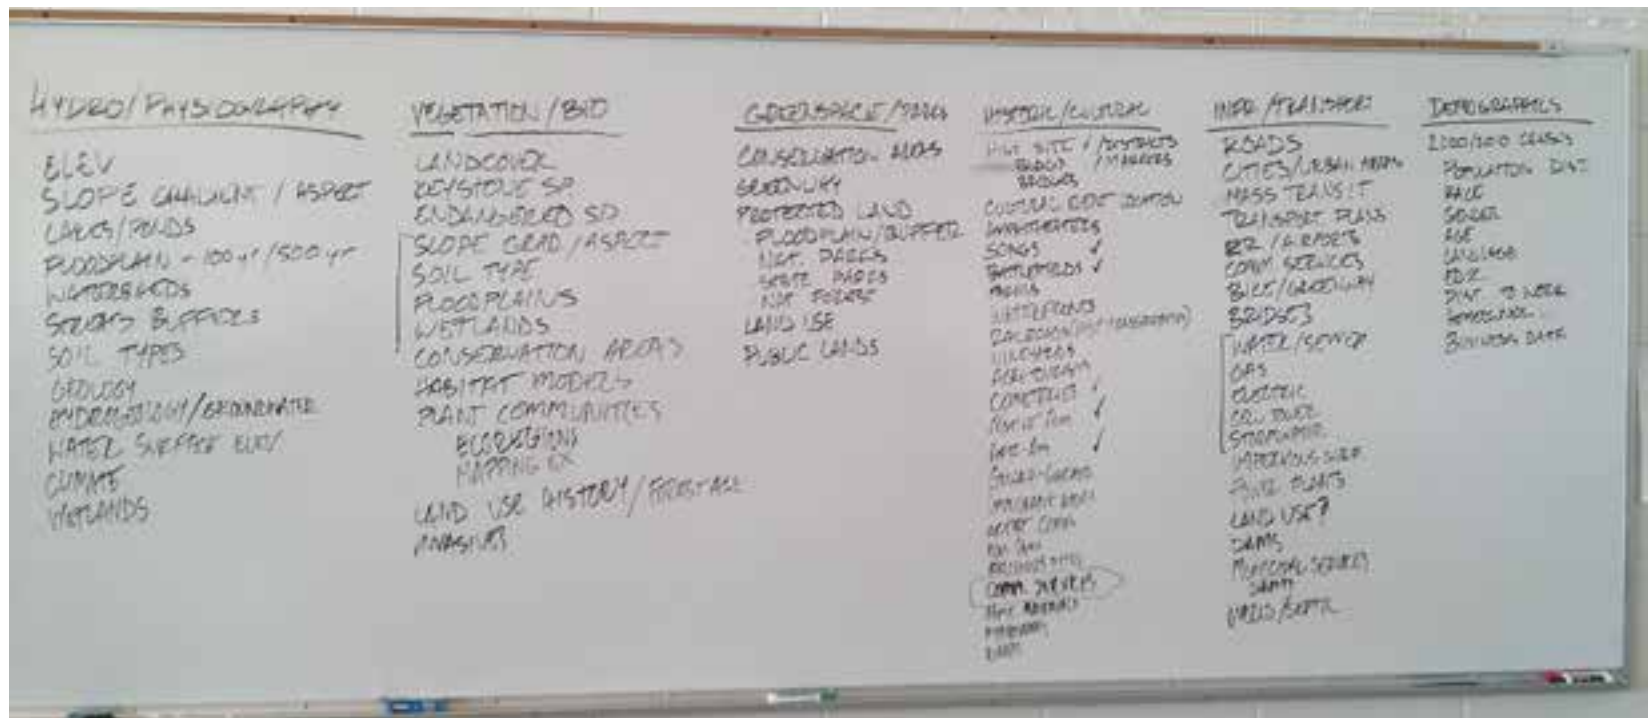 HYDRO/PHYSIOGRAPHY
ELEV
SLOPE GRADIENT / ASPECT
LAKES/PONDS
FLOODPLAIN - 100 yr / 500 yr
WATERSHEDS
STREAMS BUFFERS
SOIL TYPES
GEOLOGY
HYDROGEOLOGY/GROUNDWATER
WATER SURFACE ELEV
CLIMATE
WETLANDS
VEGETATION/BIO
LANDCOVER
KEYSTONE SP
ENDANGERED SP
SLOPE GRAD / ASPECT
SOIL TYPE
FLOODPLAINS
WETLANDS
CONSERVATION AREAS
HABITAT MODELS
PLANT COMMUNITIES
ECOREGIONS
MAPPING EX
LAND USE HISTORY/
INVASIVES
GREENSPACE/PARKS
CONSERVATION AREAS
GREENWAY
PROTECTED LAND
FLOODPLAIN/BUFFER
NAT. PARKS
STATE PARKS
NAT FOREST
LAND USE
PUBLIC LANDS
HISTORIC/CULTURAL
HIST SITE / DISTRICTS
/ MARKERS
BRIDGES
CULTURAL EVENT LOCATION
AMPHITHEATERS
SONGS ✓
BATTLEFIELDS ✓
WATERFRONTS
VINEYARDS
AGRI-TOURISM
CEMETERIES ✓
✓
✓
COMM. SERVICES
INFR/TRANSPORT
ROADS
CITIES/URBAN AREAS
MASS TRANSIT
TRANSPORT PLANS
RR / AIRPORTS
COMM SERVICES
BIKE/GREENWAY
BRIDGES
WATER/SEWER
GAS
ELECTRIC
CELL TOWER
STORMWATER
IMPERVIOUS SURF
POWER PLANTS
LAND USE?
DAMS
MUNICIPAL SERVICES
WELLS/SEPTIC
DEMOGRAPHICS
2000/2010 CENSUS
POPULATION DIST
RACE
GENDER
AGE
LANGUAGE
EDU
DIST TO WORK
BUSINESS DATA